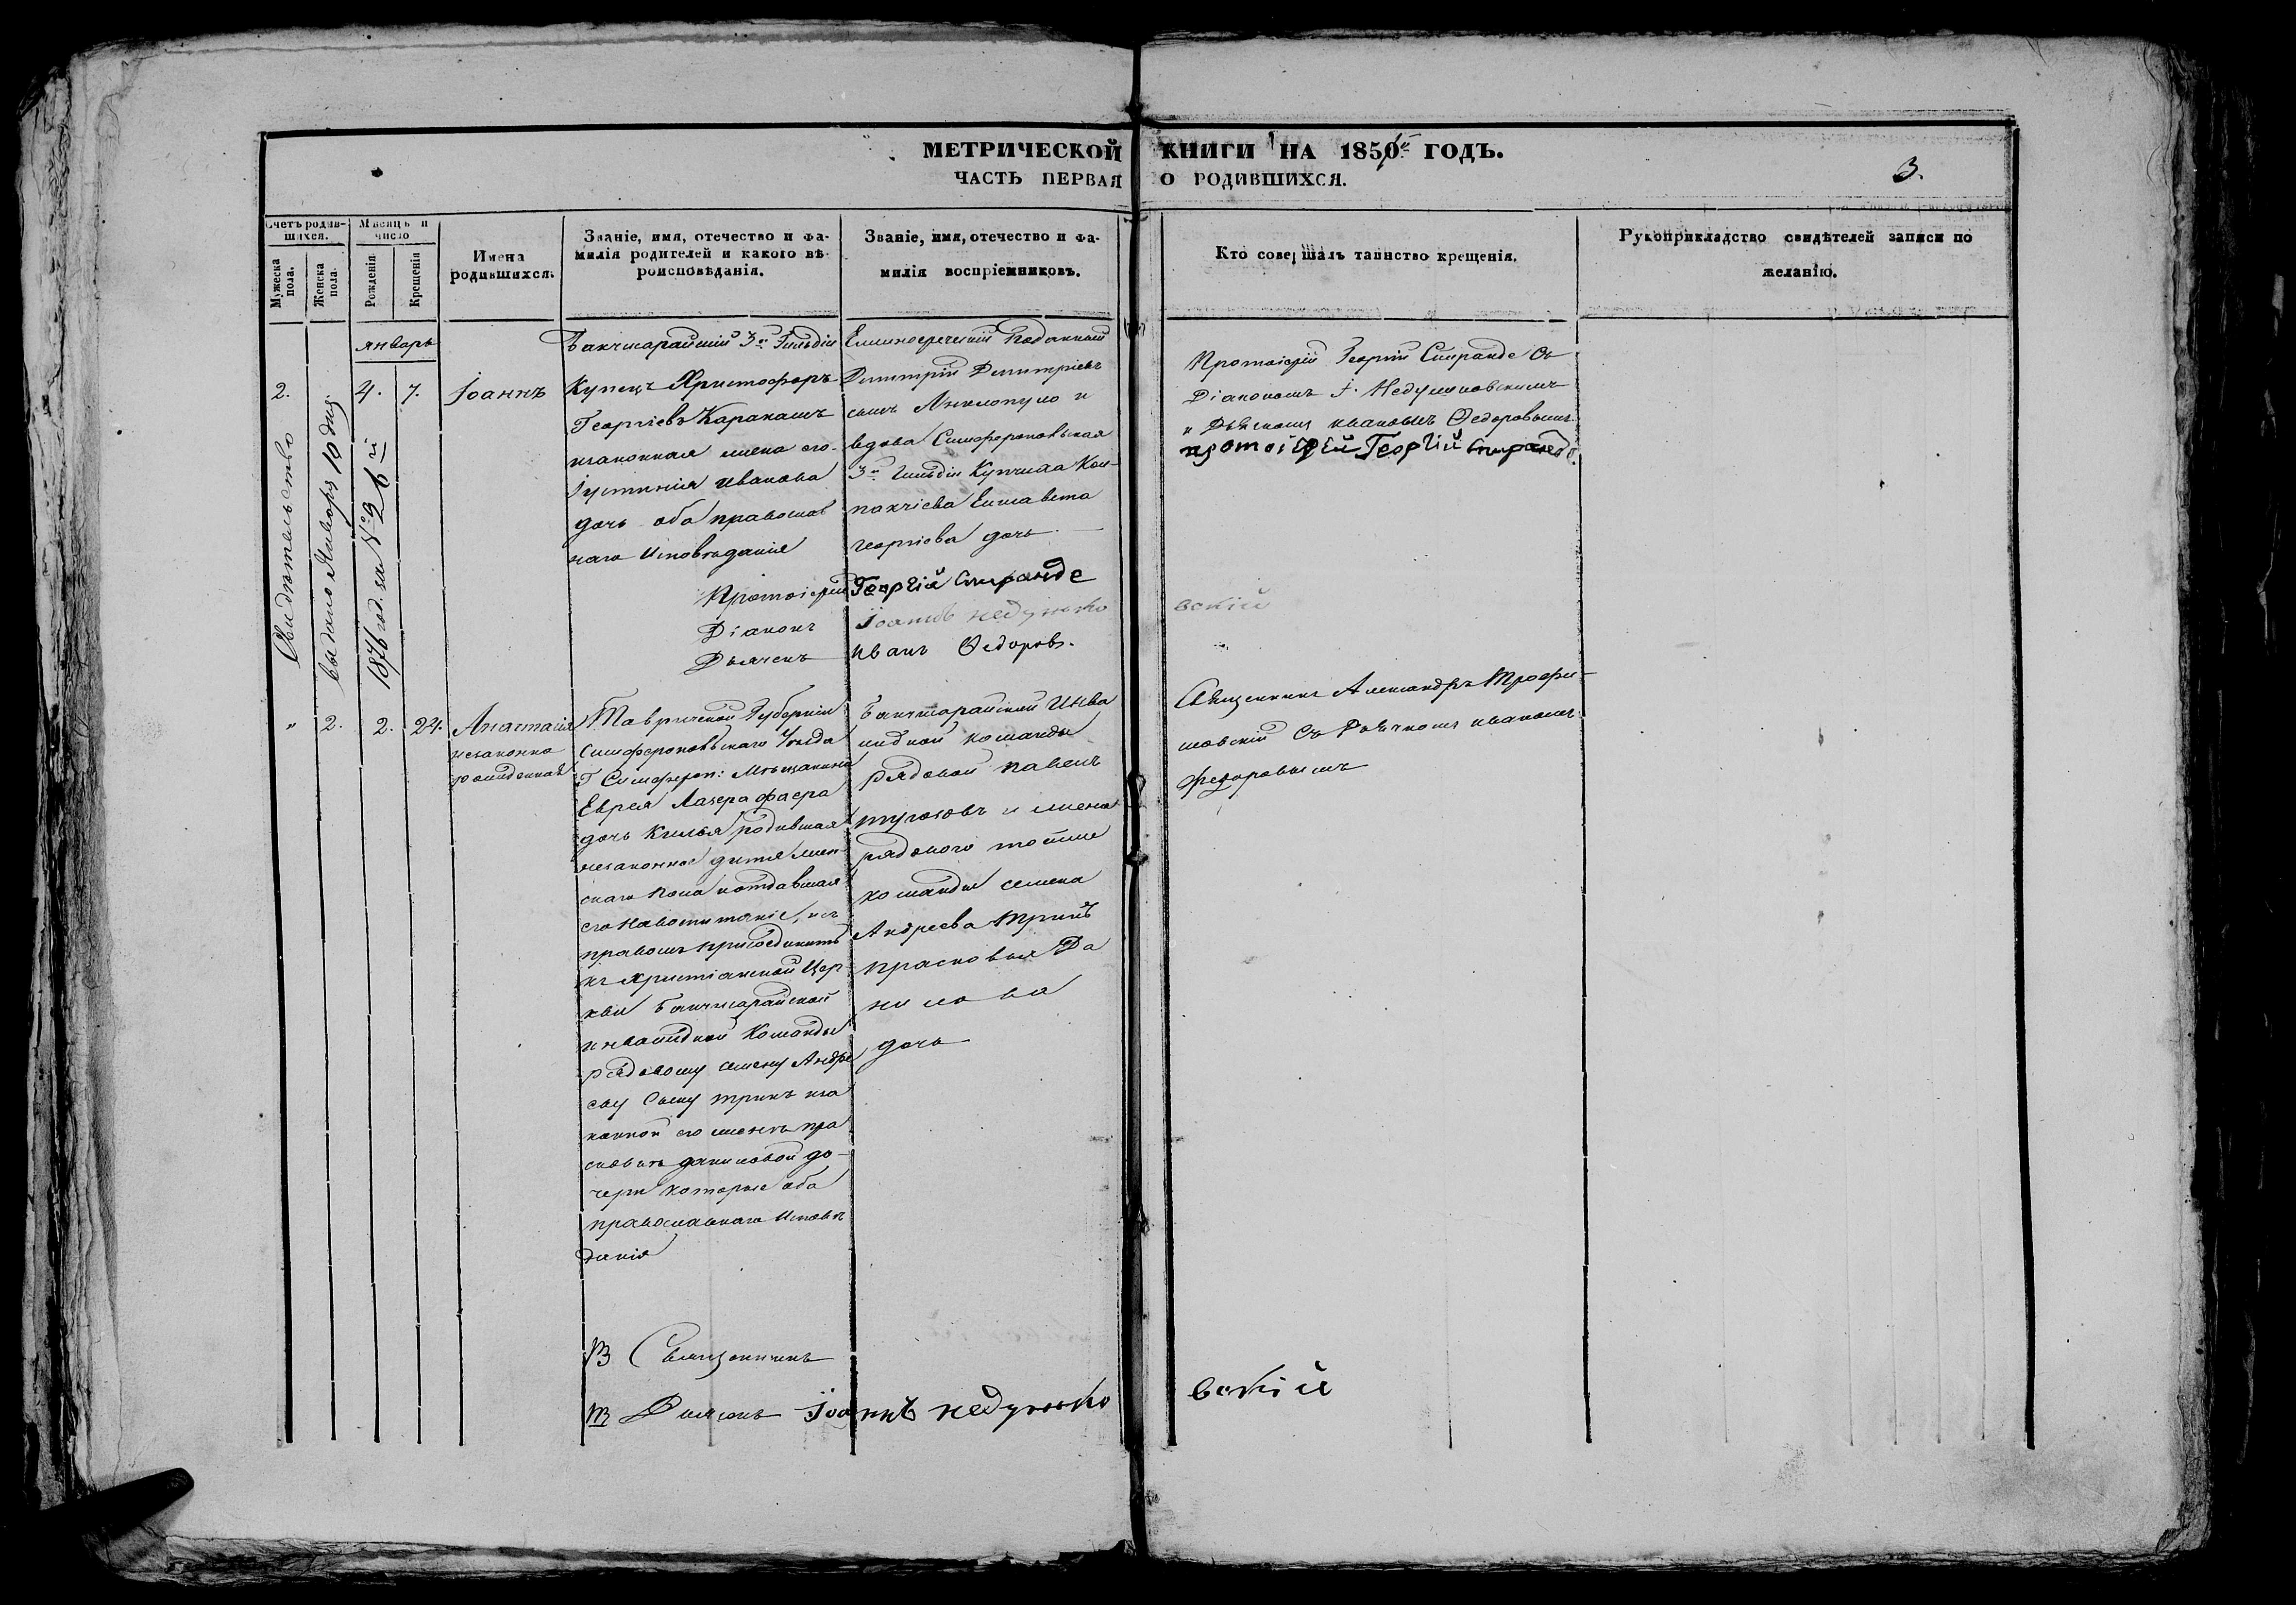 МЕТРИЧЕСКОЙ КНИГИ НА 1851й ГОДЪ.
ЧАСТЬ ПЕРВАЯ О РОДИВШИХСЯ.
3.
Счетъ родившихся.
Мужеска пола.
Женска пола.
Мѣсяцъ и число
Рожденія.
Крещенія
Имена родившихся.
Званіе, имя, отечество и фа-
милія родителей и какого вѣ-
роисповѣданія.
Званіе, имя, отечество и фа-
милія воспріемниковъ.
Кто совершалъ таинство крещенія.
Рукоприкладство свидѣтелей записи по
желанію.
январь
2.
4.
7.
Іоаннъ
Бакчисарайскій 3й Гильдіи
Купецъ Христофоръ
Георгіевъ Каракашъ
изаконная жена его
Іустинія Иванова
дочь оба православ
наго Исповѣданія
Еллиногреческій Подданный
Димитрій Димитріевъ
сынъ и
вдова Симферопольская
3й Гильдіи Купчиха Кон-
Елисавета
Георгіева дочь
Протоіерей Георгій Спиранде Съ
Діакономъ І. Недзельковскимъ
и Дьячкомъ иваномъ Федоровымъ
протоіерей Георгій Спирандо.
Протоіерей Георгій Спиранде
Діаконъ Іоаннъ недзелько вскій
Дьячекъ иванъ Федоровъ.
Свидѣтельство
выдано Января 10 дня
1876 год. за № 26й
"
2.
2.
24.
Анастасія
незаконно
рожденная
Таврической Губерніи
Симферопольскаго Уѣзда
Г Симфероп: Мѣщанина
Еврея Лазера фаера
дочь родившая
незаконное дитя жен-
скаго Пола иотдавшая
его Навоспитаніе, исъ
правомъ присоединить
къ Христіанской Цер
кви Бакчисарайской
инвалидной Команды
рядовому семену Андре
еву Сыну иза
конной его женѣ пра
сковьи даниловой до-
чери которые оба
православнаго Исповѣ
данія
Бакчисарайской Инва
лидной команды
рядовой павелъ
и жена
рядового тойже
команды семена
Андреева
прасковья Да
нилова
дочь
Священникъ Александръ Трофи-
мовскій Съ Дьячкомъ иваномъ
федоровымъ
Священникъ
Іоаннъ недзелько вскій